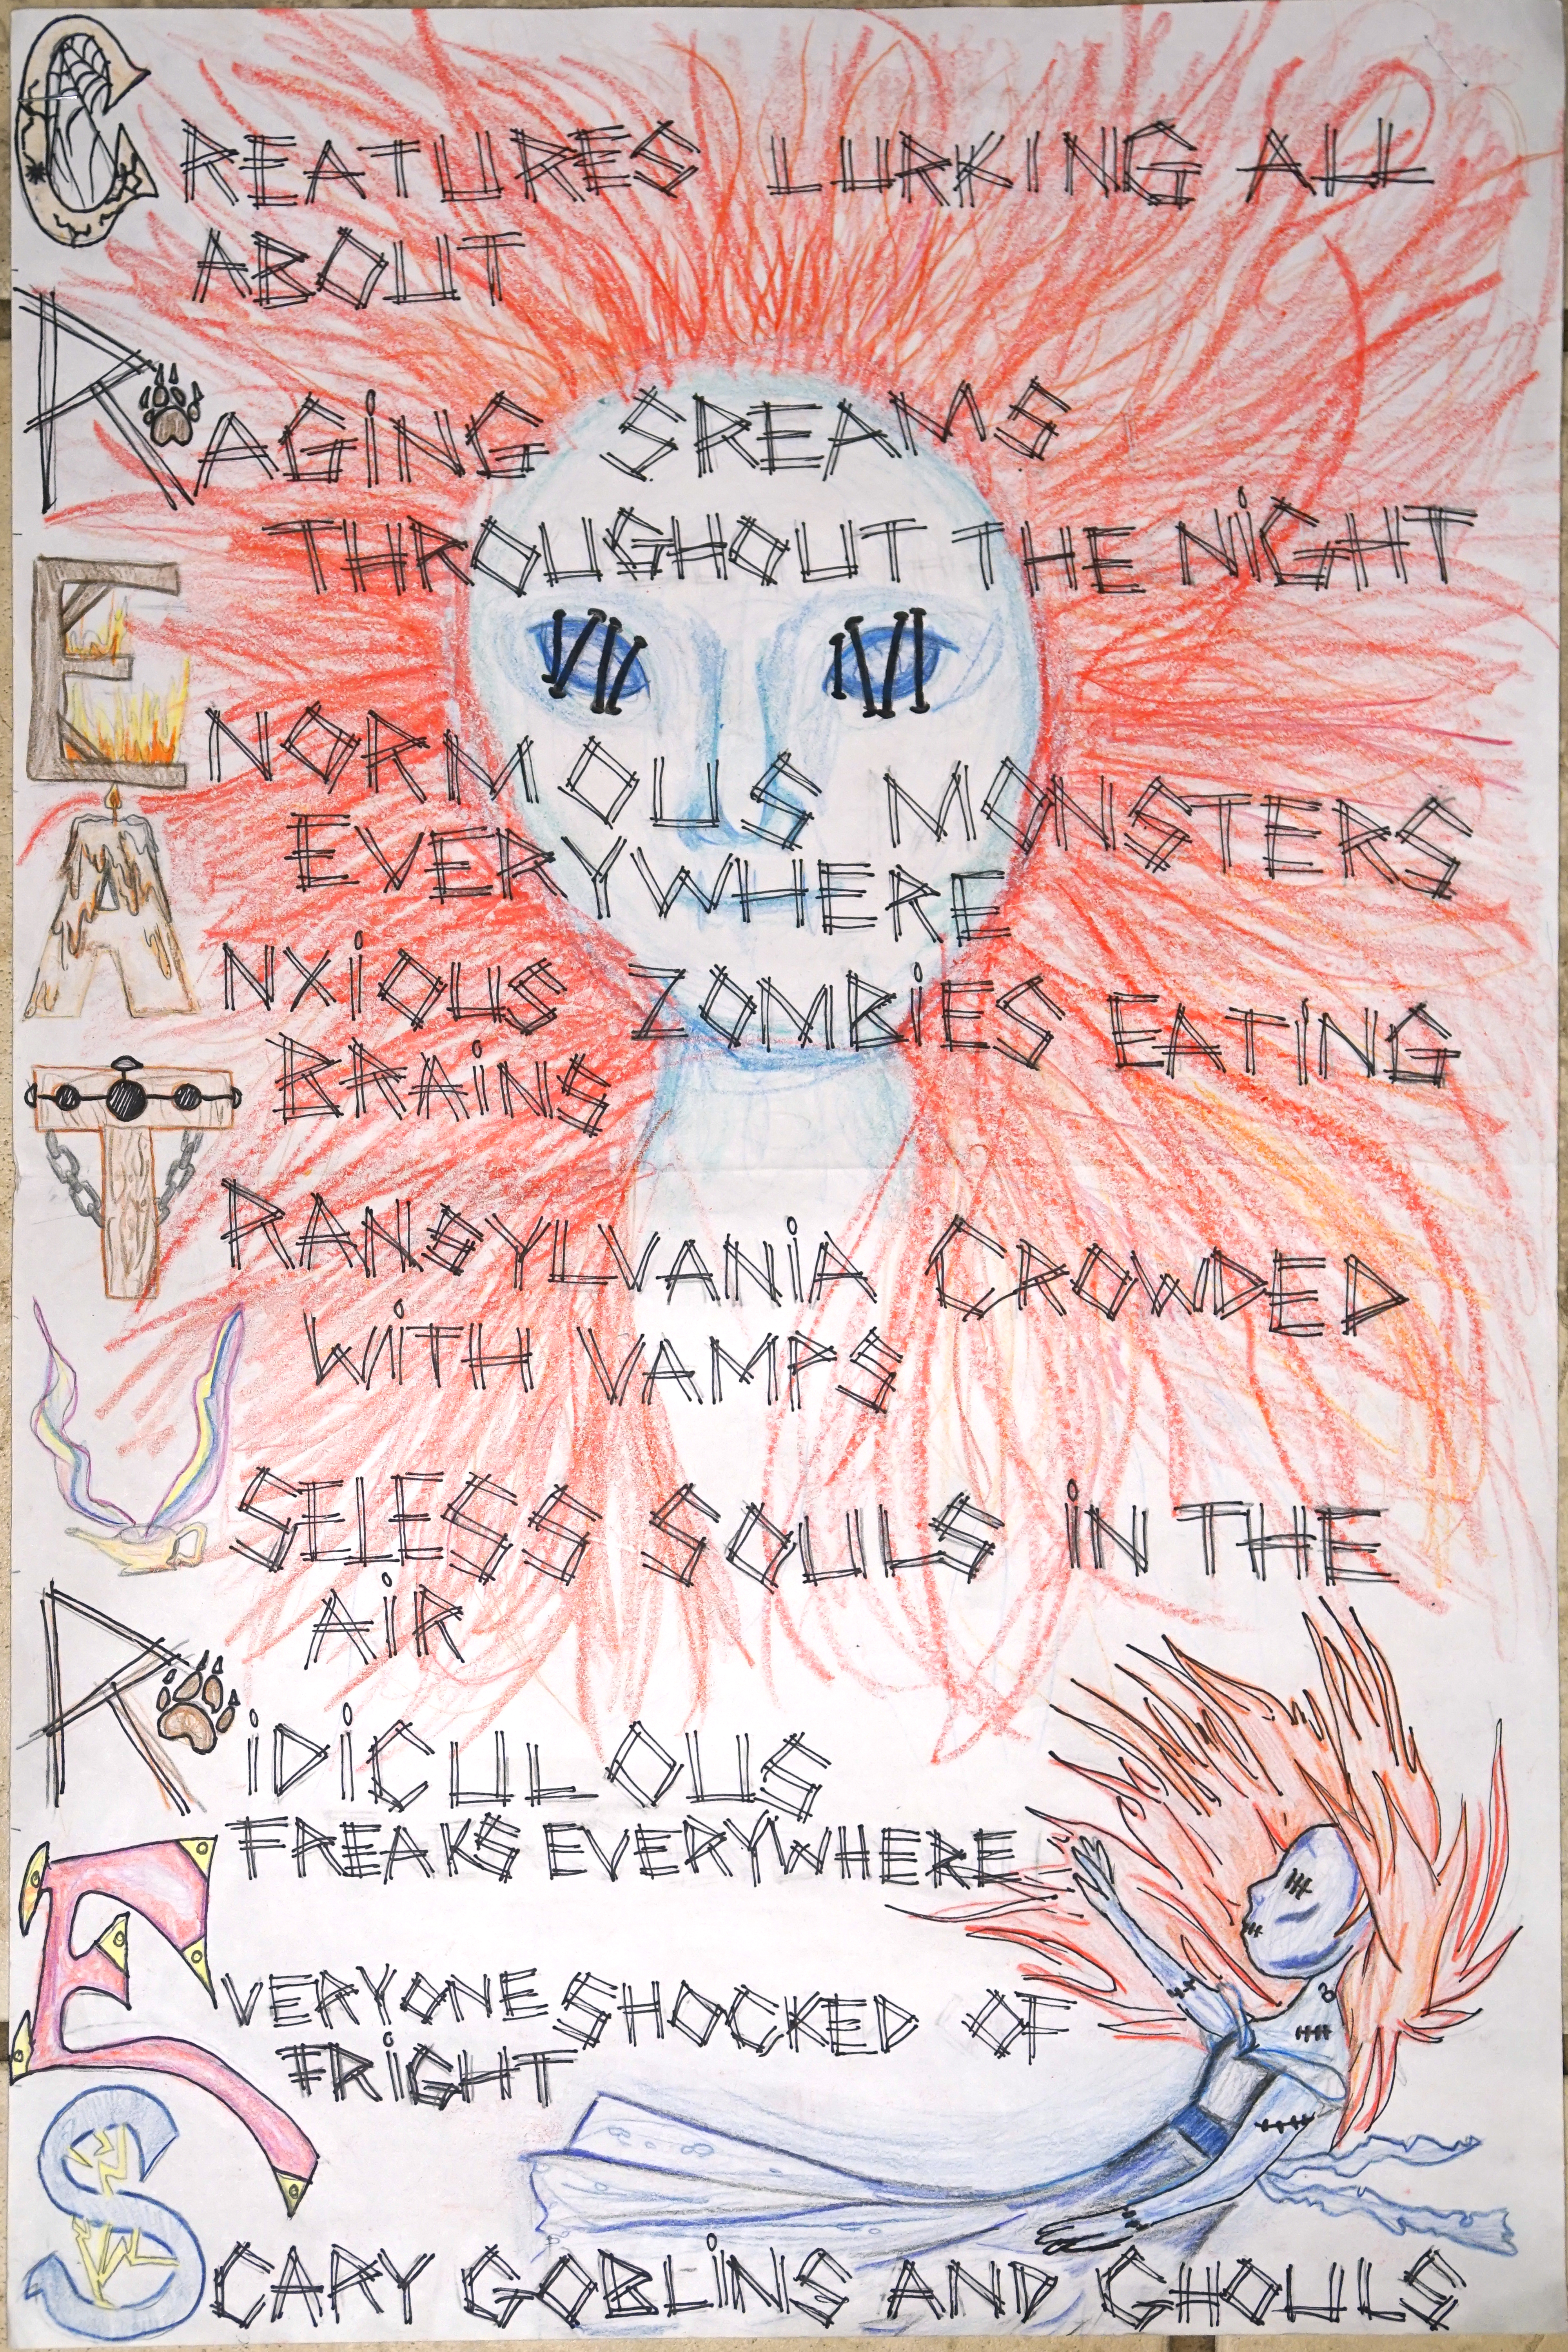 CREATURES LURKING ALL
ABOUT
RAGiNG SREAMS
THROUGHOUT THE NiGHT
ENORMOUS MONSTERS
EVERYWHERE
ANXiOUS ZOMBiES EATiNG
BRAiNS
TRANSYLVANiA CROWDED
WiTH VAMPS
USELESS SOULS iN THE
AiR
RiDiCULOUS
FREAKS EVERYWHERE
EVERYONE SHOCKED OF
FRiGHT
SCARY GOBLiNS AND GHOULS